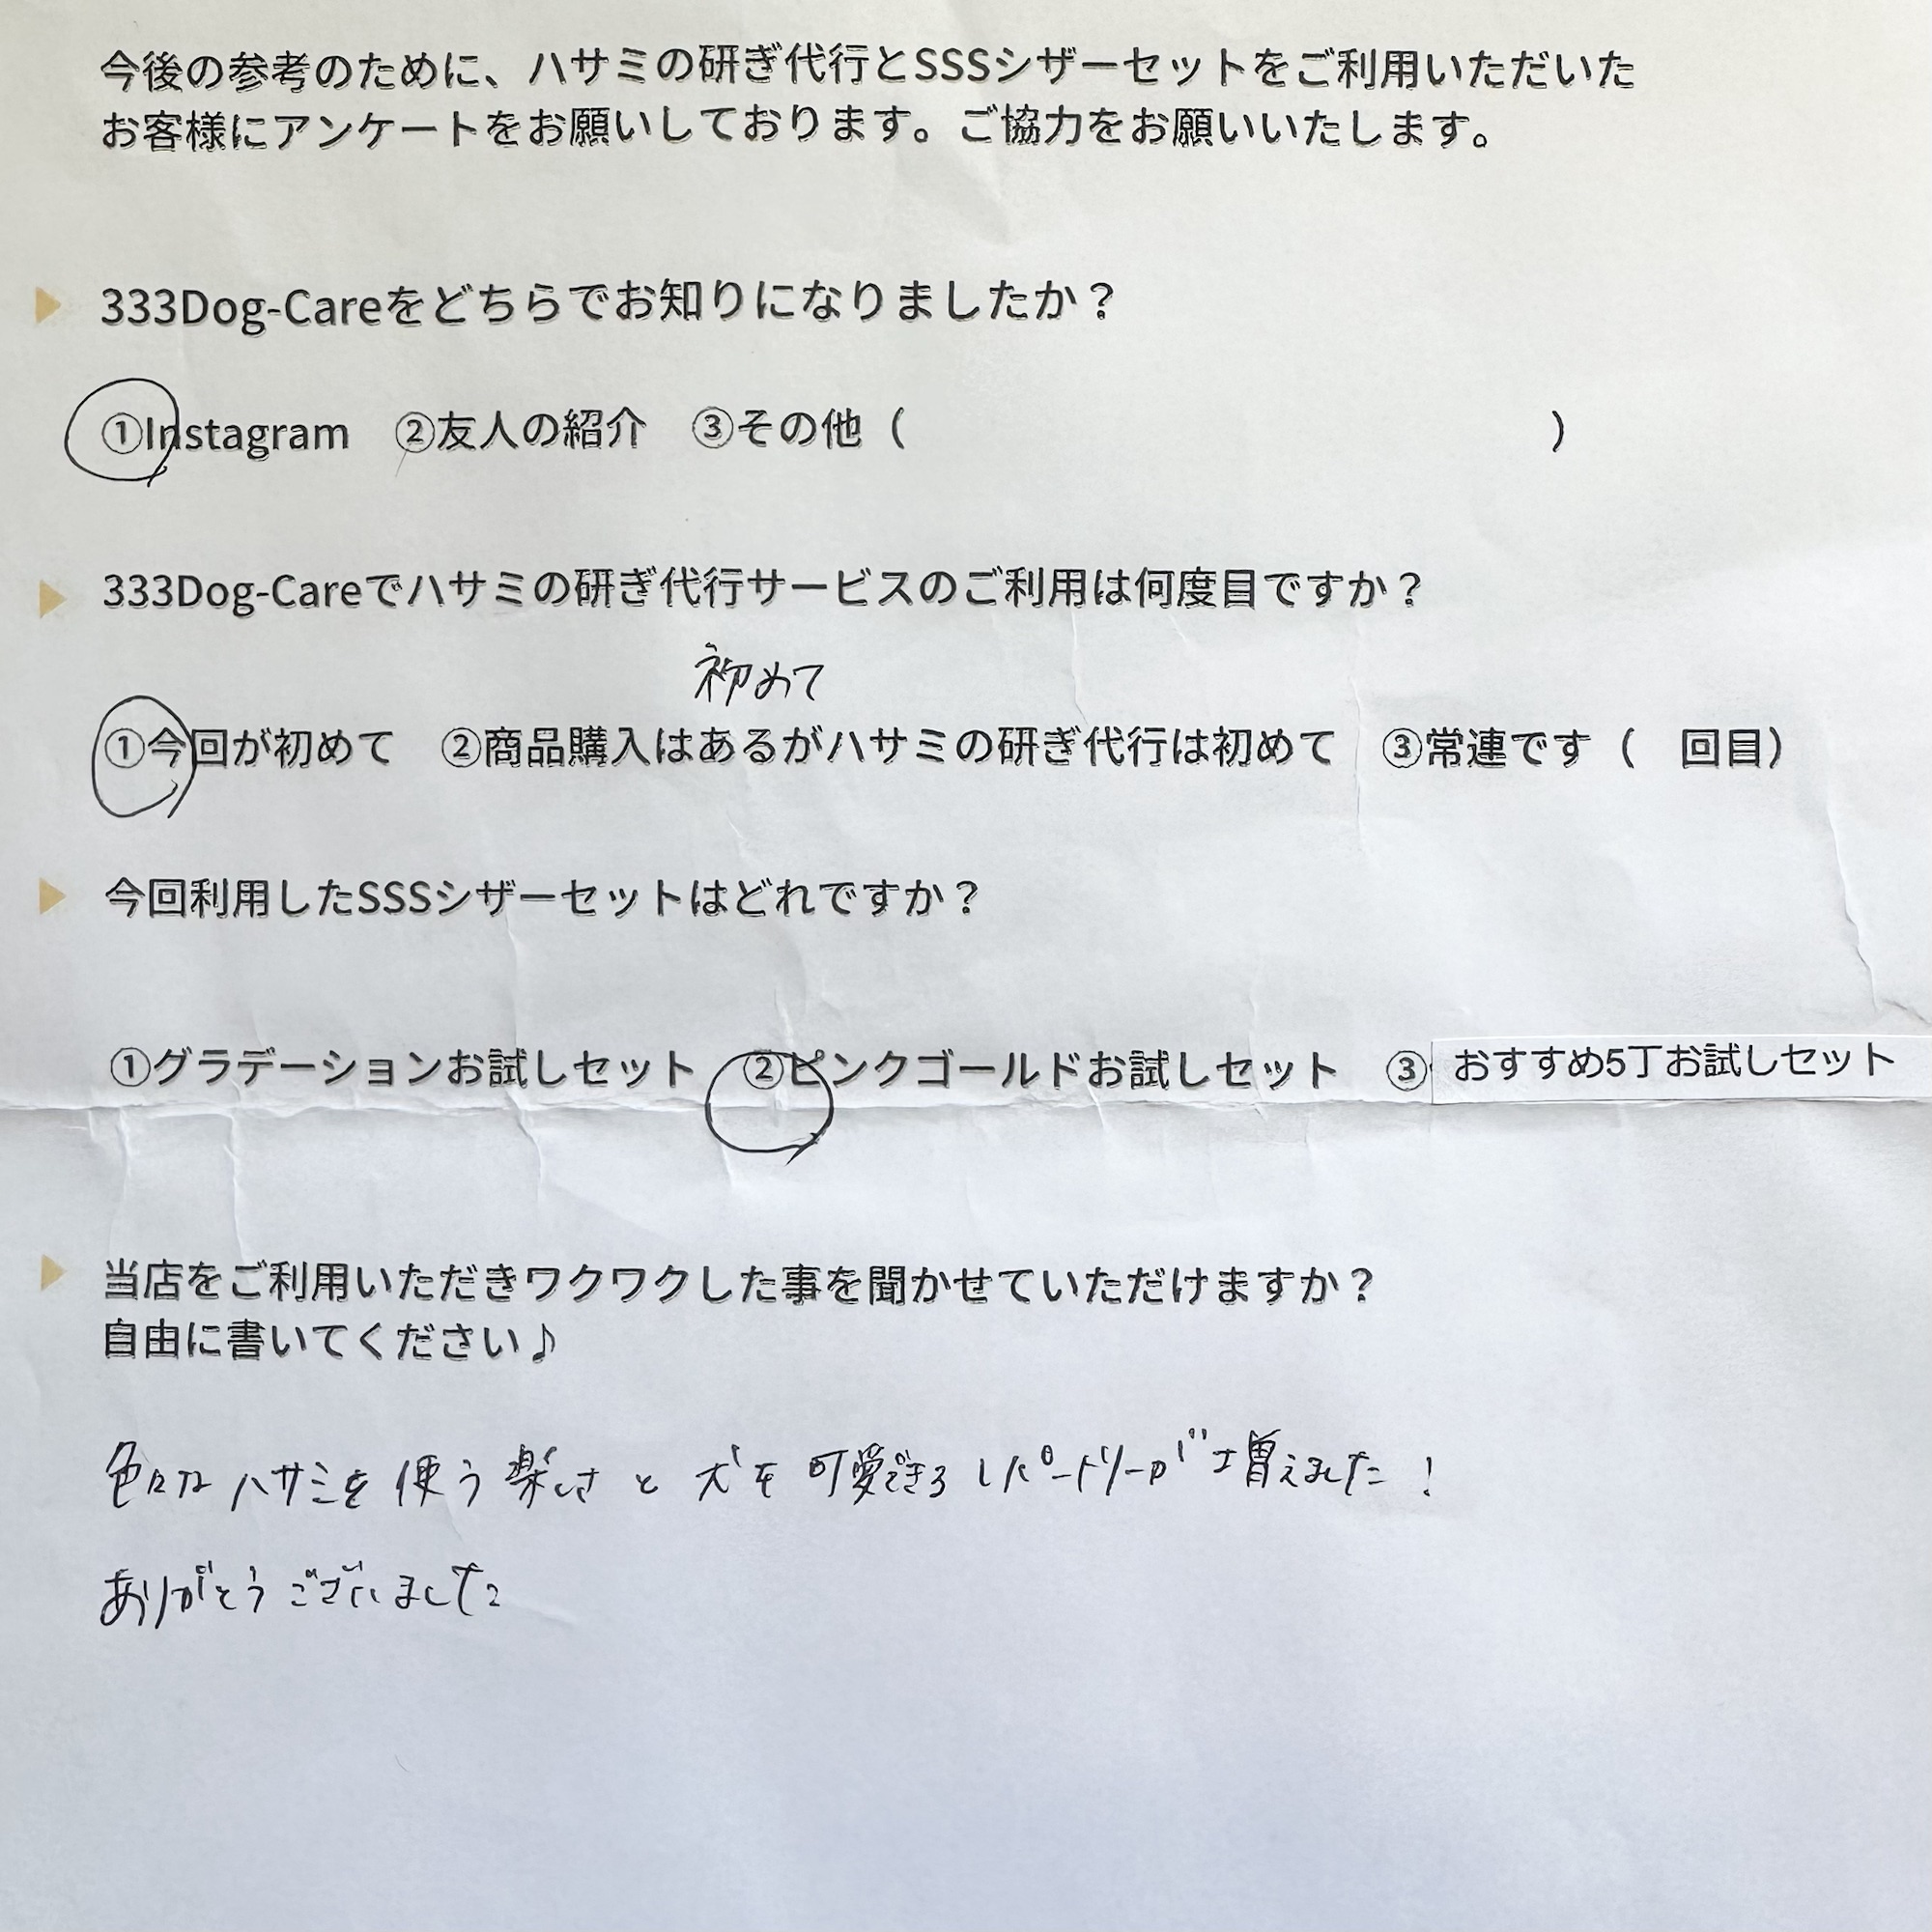 今後の参考のために、ハサミの研ぎ代行とSSSシザーセットをご利用いただいた
お客様にアンケートをお願いしております。ご協力をお願いいたします。
333Dog-Careをどちらでお知りになりましたか？
①Instagram ②友人の紹介 ③その他（ ）
333Dog-Careでハサミの研ぎ代行サービスのご利用は何度目ですか？
初めて
①今回が初めて ②商品購入はあるがハサミの研ぎ代行は初めて ③常連です（ 回目）
今回利用したSSSシザーセットはどれですか？
①グラデーションお試しセット ②ピンクゴールドお試しセット ③おすすめ5丁お試しセット
当店をご利用いただきワクワクした事を聞かせていただけますか？
自由に書いてください♪
色々なハサミを使う楽しさと犬を可愛できるレパートリーが増えました！
ありがとうございました